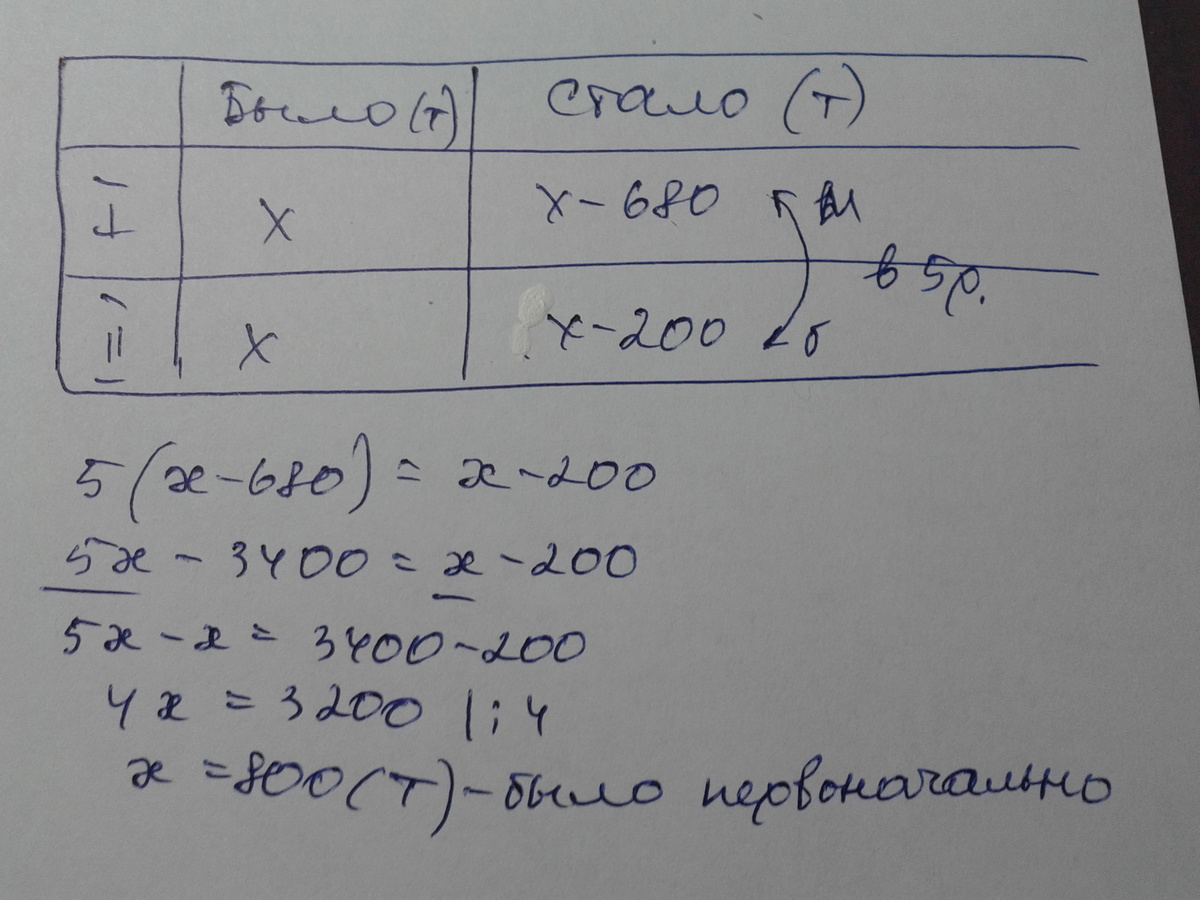 Было (т) Стало (т)
I) X X-680 м
в 5 р.
II) X X-200 б
5(x-680) = x-200
5x - 3400 = x - 200
5x - x = 3400 - 200
4x = 3200 |:4
x = 800 (т) - было первоначально